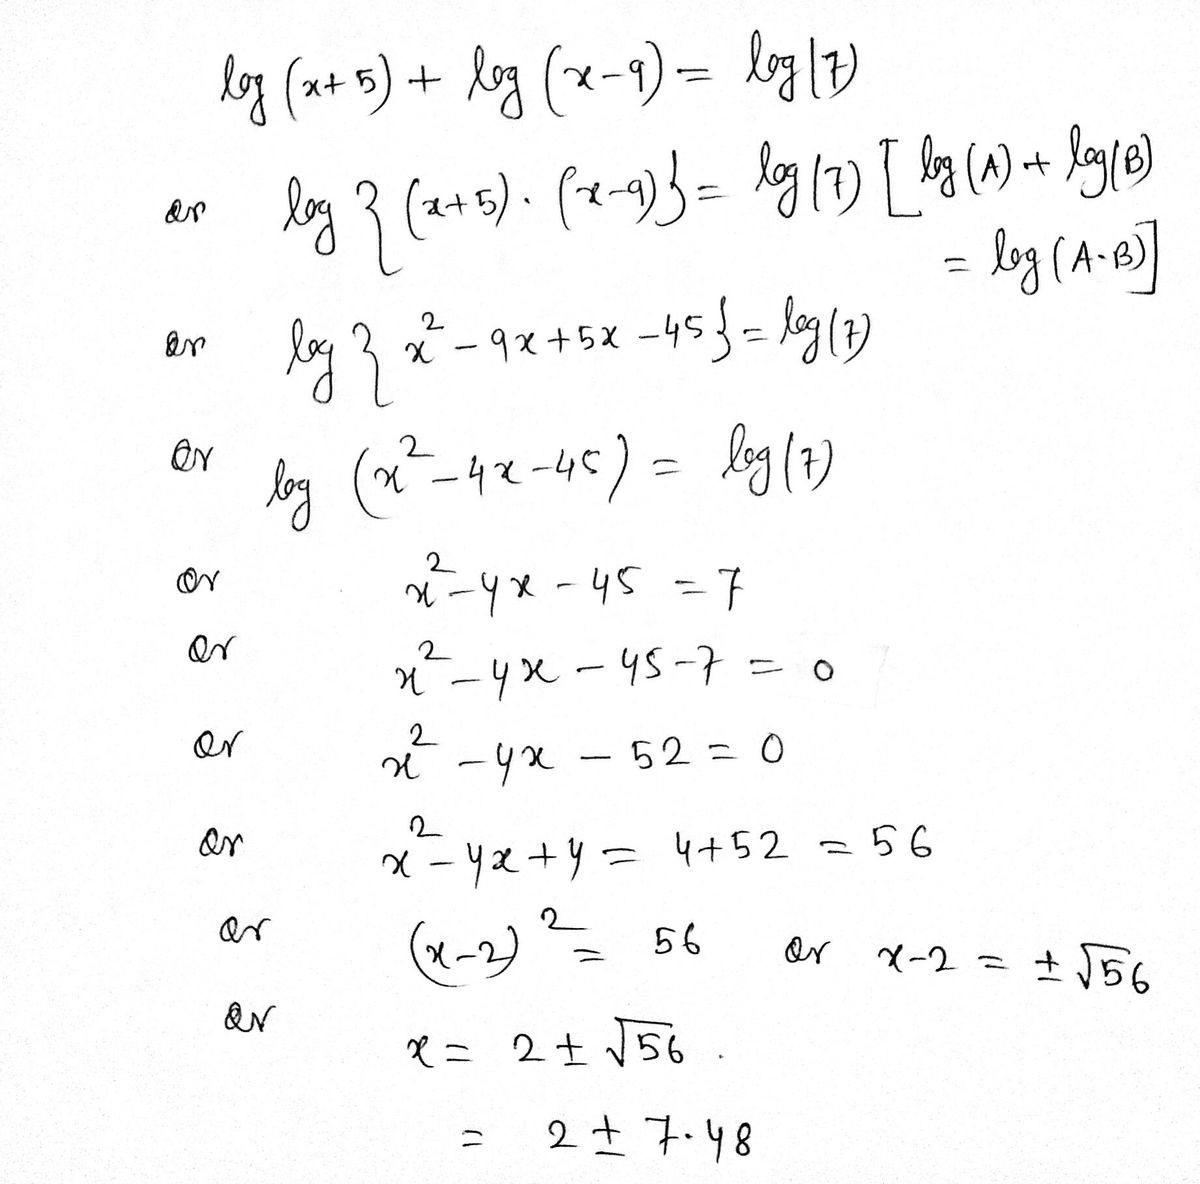 log (x+5) + log (x-9) = log(7)
or log {(x+5) · (x-9)} = log(7) [log(A) + log(B)
= log(A·B)]
or log {x² - 9x + 5x - 45} = log(7)
or log (x² - 4x - 45) = log(7)
or x² - 4x - 45 = 7
or x² - 4x - 45 - 7 = 0
or x² - 4x - 52 = 0
or x² - 4x + 4 = 4 + 52 = 56
or (x-2)² = 56 or x-2 = ±√56
or x = 2 ± √56 .
= 2 ± 7.48